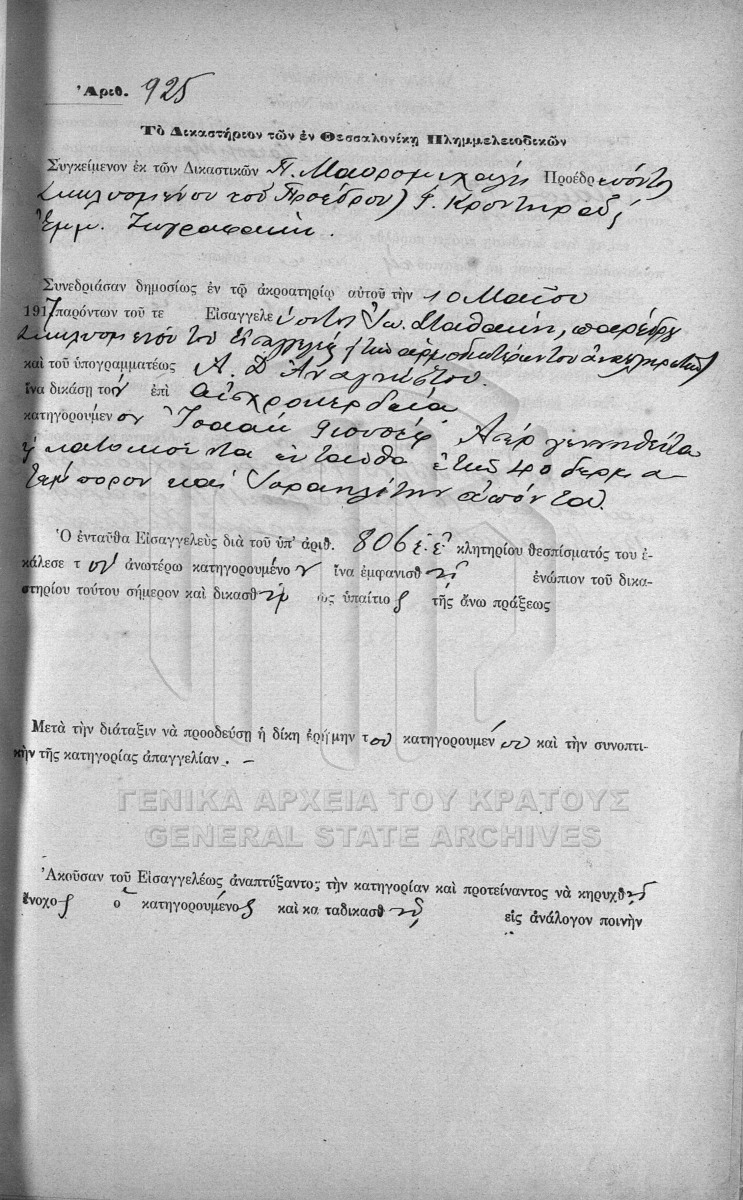 Ἀριθ. 925
Τὸ Δικαστήριον τῶν ἐν Θεσσαλονίκῃ Πλημμελειοδικῶν
Συγκείμενον ἐκ τῶν Δικαστικῶν Π. Μαυρομιχάλη Προέδρεύοντος
κωλυομένου τοῦ Προέδρου)
Ἐμμ. Ζωγραφάκη.
Συνεδριάσαν δημοσίως ἐν τῷ ἀκροατηρίῳ αὐτοῦ τὴν 10 Μαΐου
1917 παρόντων τοῦ τε Εἰσαγγελεύοντος Ἰω. παρέδρου
κωλυομένου τοῦ Εἰσαγγελέως
καὶ τοῦ ὑπογραμματέως Α. Δ. Ἀναγνώστου.
ἵνα δικάσῃ τόν ἐπὶ αἰσχροκερδείᾳ
κατηγορούμενον Ἰσαὰκ Γιουσὲφ Ἀσέρ γεννηθέντα
ἢ κατοικοῦντα ἐνταῦθα ἐτῶν 40 δερμα-
τέμπορον καὶ Ἰσραηλίτην ἀπόντος.
Ὁ ἐνταῦθα Εἰσαγγελεὺς διὰ τοῦ ὑπ' ἀριθ. 806 ἐ. ἔ. κλητηρίου θεσπίσματός του ἐ-
κάλεσε τὸν ἀνωτέρω κατηγορουμένον ἵνα ἐμφανισθῇ ἐνώπιον τοῦ δικα-
στηρίου τούτου σήμερον καὶ δικασθῇ ὡς ὑπαίτιος τῆς ἄνω πράξεως
Μετὰ τὴν διάταξιν νὰ προοδεύσῃ ἡ δίκη ἐρήμην τοῦ κατηγορουμένου καὶ τὴν συνοπτι-
κὴν τῆς κατηγορίας ἀπαγγελίαν. –
ΓΕΝΙΚΑ ΑΡΧΕΙΑ ΤΟΥ ΚΡΑΤΟΥΣ
GENERAL STATE ARCHIVES
Ἀκοῦσαν τοῦ Εἰσαγγελέως ἀναπτύξαντος τὴν κατηγορίαν καὶ προτείναντος νὰ κηρυχθῇ
ἔνοχος ὁ κατηγορουμένος καὶ καταδικασθῇ εἰς ἀνάλογον ποινὴν